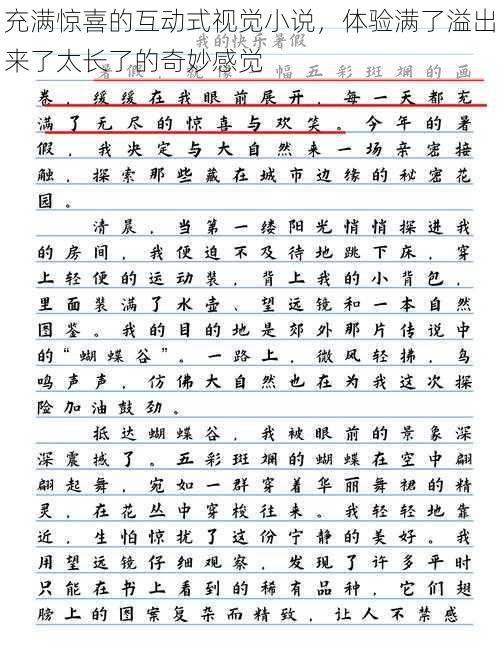 充满惊喜的互动式视觉小说，体验满了溢出
来了太长了的奇妙感觉
我的快乐暑假
暑假，就像一幅五彩斑斓的画
卷，缓缓在我眼前展开，每一天都充
满了无尽的惊喜与欢笑。今年的暑
假，我决定与大自然来一场亲密接
触，探索那些藏在城市边缘的秘密花
园。
清晨，当第一缕阳光悄悄探进我
的房间，我便迫不及待地跳下床，穿
上轻便的运动装，背上我的小背包，
里面装满了水壶、望远镜和一本自然
图鉴。我的目的地是郊外那片传说中
的“蝴蝶谷”。一路上，微风轻拂，鸟
鸣声声，仿佛大自然也在为我这次探
险加油鼓劲。
抵达蝴蝶谷，我被眼前的景象深
深震撼了。五彩斑斓的蝴蝶在空中翩
翩起舞，宛如一群穿着华丽舞裙的精
灵，在花丛中穿梭往来。我轻轻地靠
近，生怕惊扰了这份宁静的美好。我
用望远镜仔细观察，发现了许多平时
只能在书上看到的稀有品种，它们翅
膀上的图案复杂而精致，让人不禁感